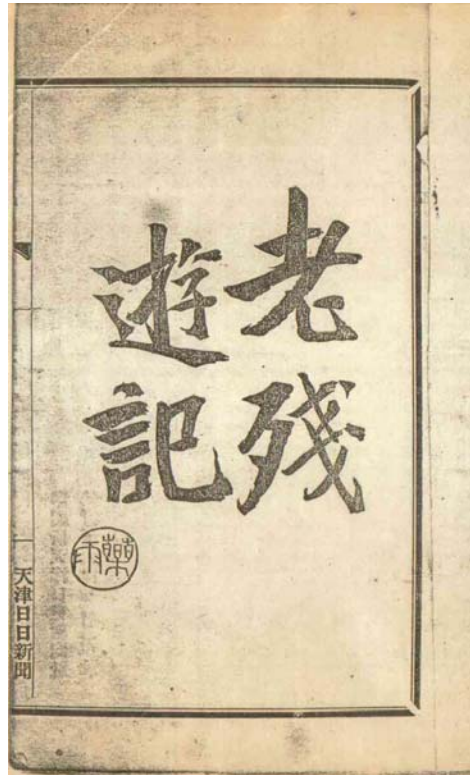 老殘
遊記
藥雨
天津日日新聞